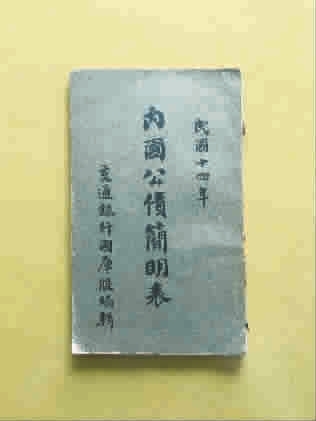 民國十四年
內國公債簡明表
交通銀行國庫股編輯